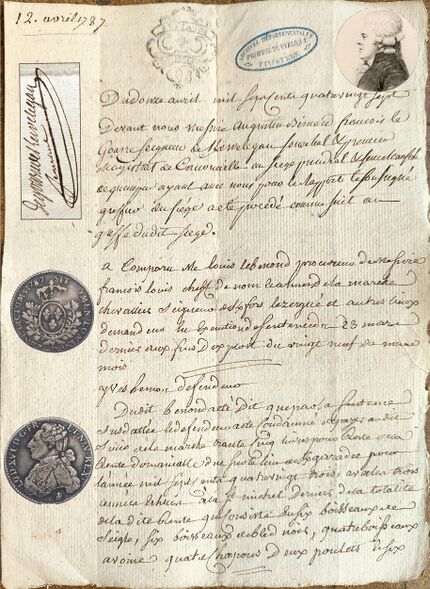 12. avril 1787.
ARCHIVES DÉPARTEMENTALES
PROPRIÉTÉ PUBLIQUE
FINISTÈRE
Du douze avril mil sept cents quatre vingt sept
Devant nous messire Augustin Bernard francois le
Goazre Seigneur de Kervelegan Senechal et premier
Magistrat de Cornouaille au siege presidial de
de quimper ayant avec nous pour le Rapport le soussigné
greffier du siége a eté procédé comme suit au
greffe dudit siege.
a Comparu Me louis lebenond procureur de Messire
francois louis cheff de nom et armes de la marche
chevallier Seigneur de lezergué et autres lieux
demandeur en execution de sentence du 28 mars
dernier aux fins d'exploit du vingt neuf du même
mois
yves hemon defendeur
Dudit benond a eté Dit que par la sentence
susdattée le defendeur a eté condamné de payer audit
Sieur de la marche trante cinq livres pour Reste de la
Rente domanialle d'une
l'année mil sept cents quatre vingt trois, avec les trois
années échues à la St michel derniere de la totalité
de la dite Rente qui consiste de six boisseaux de
Seigle, six boisseaux de bled noir, quatre boisseaux
avoine quatre chapons Deux poulets et six
LUD.XVI.D.G.FR.ET NAV.REX